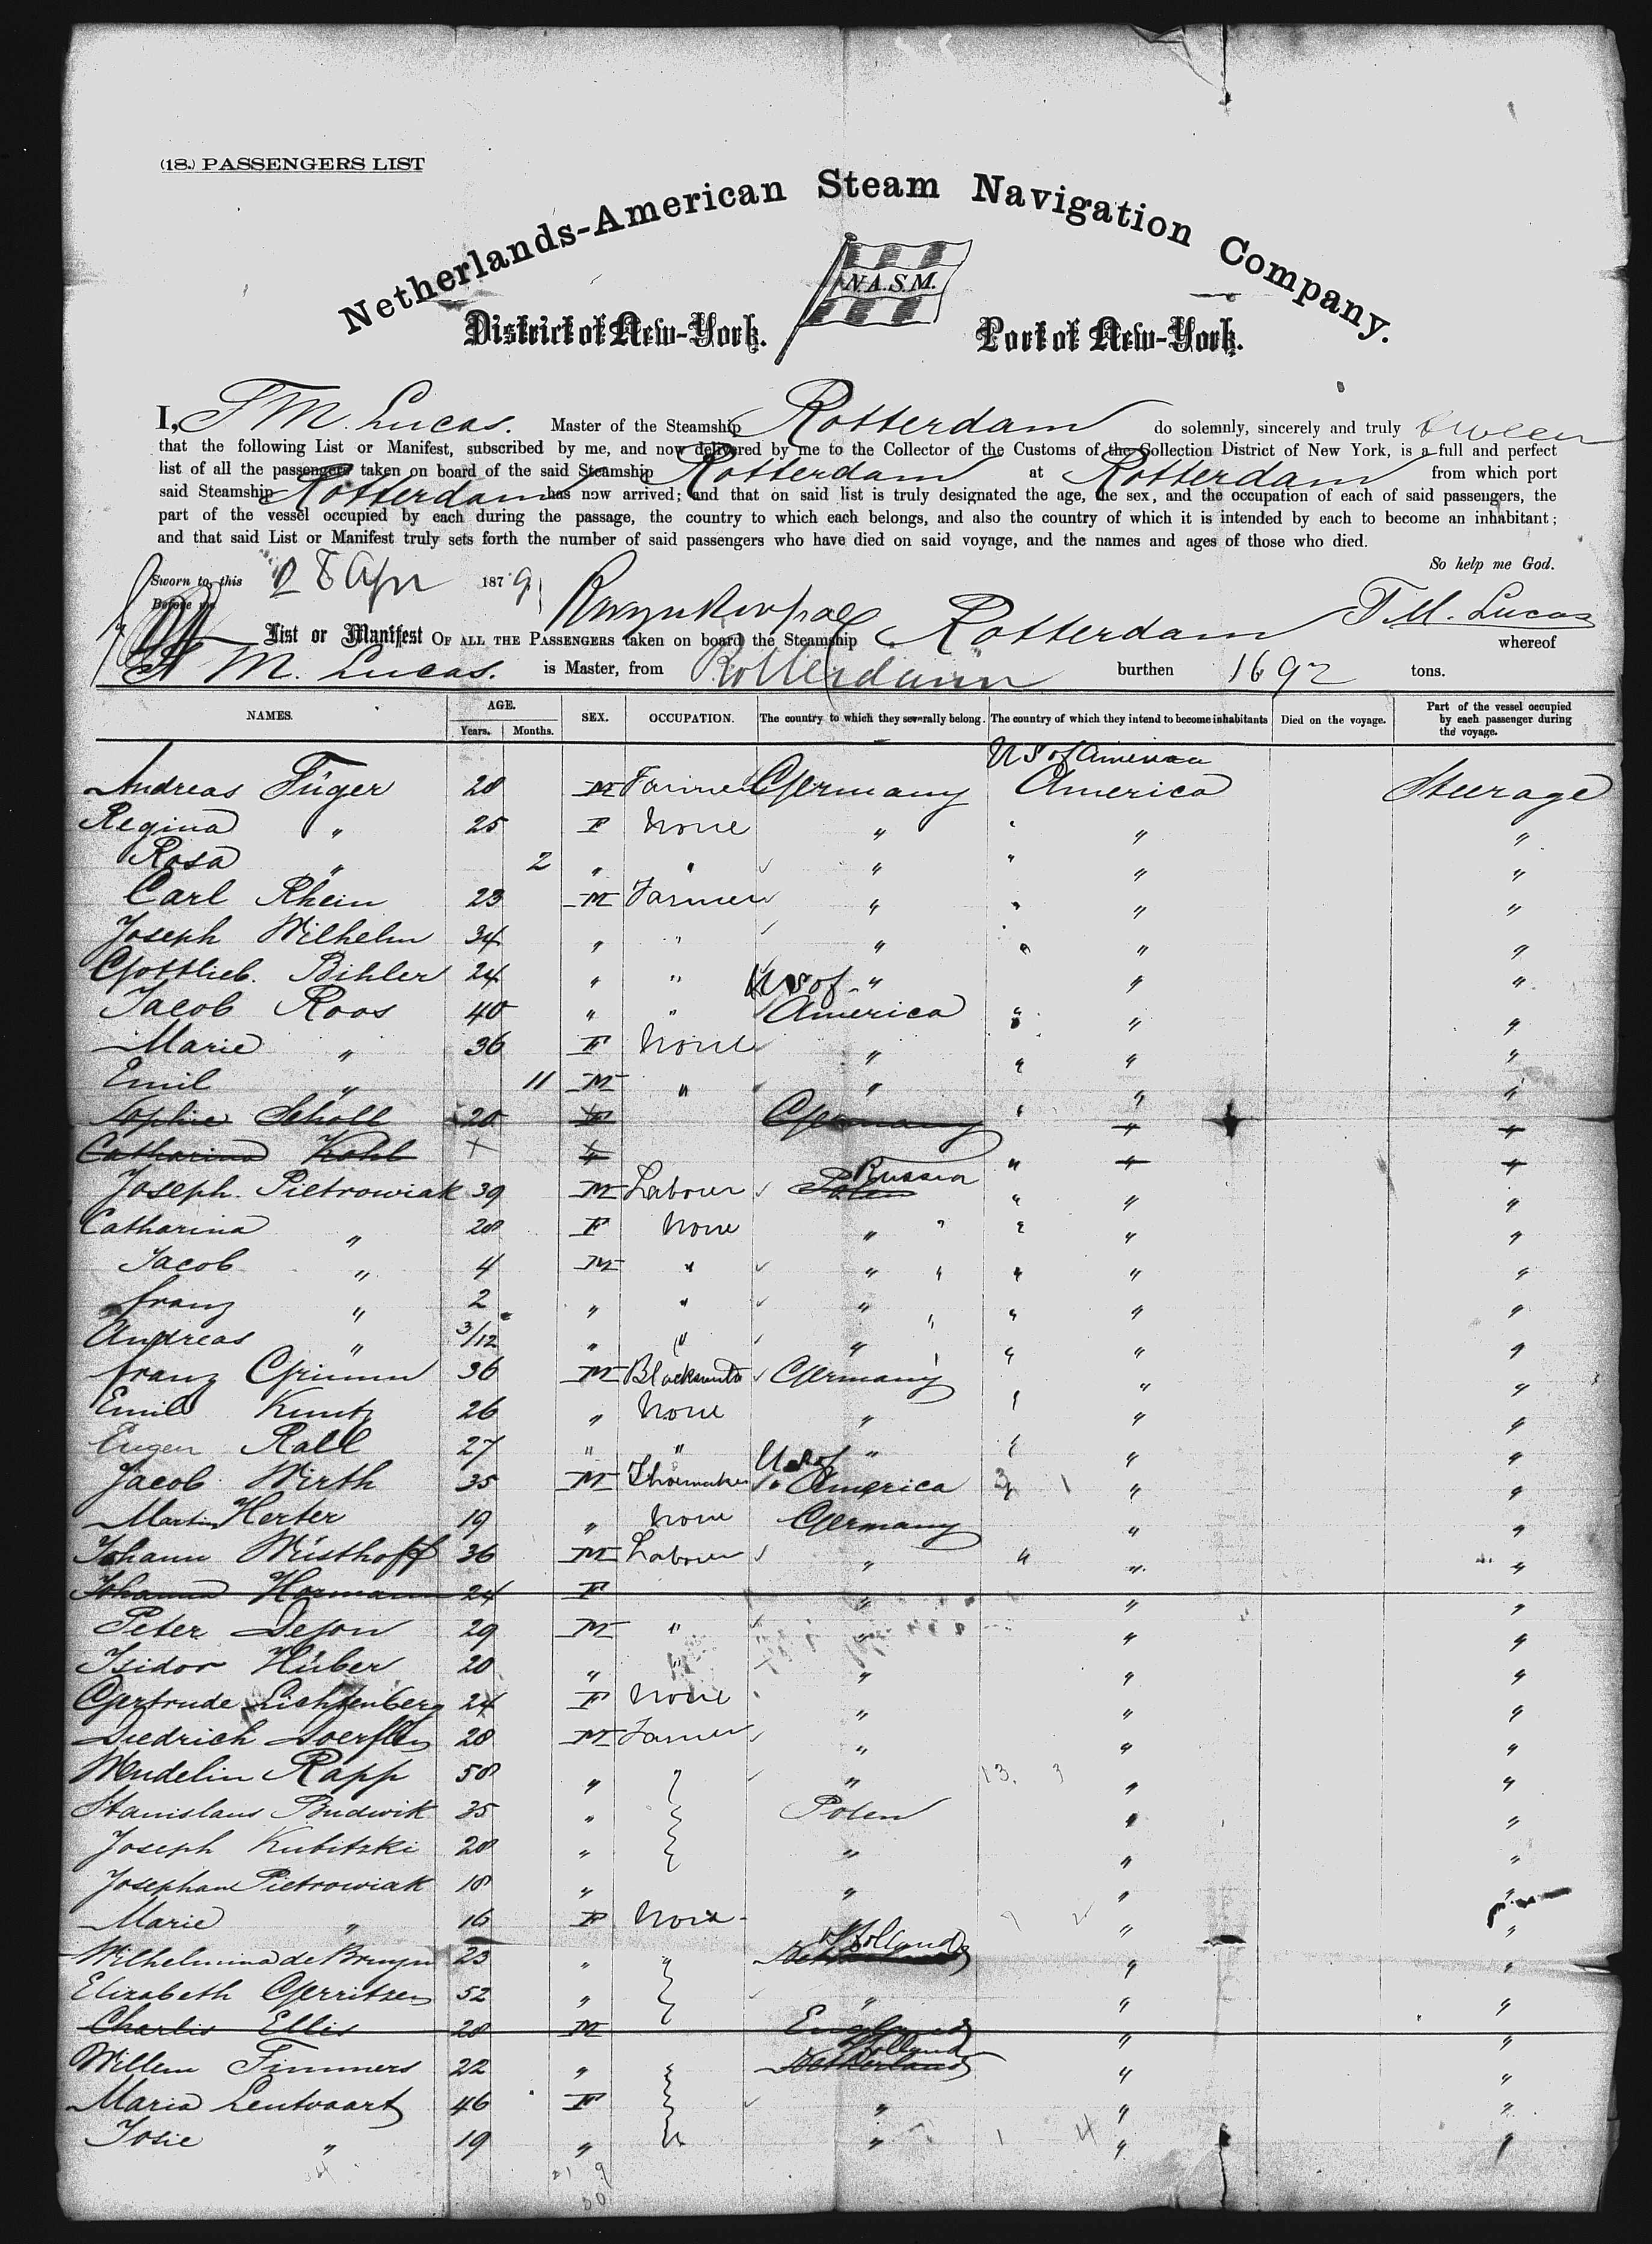 (18.) PASSENGERS LIST
Netherlands-American Steam Navigation Company.
N.A.S.M.
District of New-York. Port of New-York.
I, F M. Lucas. Master of the Steamship Rotterdam do solemnly, sincerely and truly swear
that the following List or Manifest, subscribed by me, and now delivered by me to the Collector of the Customs of the Collection District of New York, is a full and perfect
list of all the passengers taken on board of the said Steamship Rotterdam at Rotterdam from which port
said Steamship Rotterdam has now arrived; and that on said list is truly designated the age, the sex, and the occupation of each of said passengers, the
part of the vessel occupied by each during the passage, the country to which each belongs, and also the country of which it is intended by each to become an inhabitant;
and that said List or Manifest truly sets forth the number of said passengers who have died on said voyage, and the names and ages of those who died.
So help me God.
Sworn to, this 28 Apr 1879
Before me
F M. Lucas
List or Manifest OF ALL THE PASSENGERS taken on board the Steamship Rotterdam whereof
F M. Lucas. is Master, from Rotterdam burthen 1692 tons.
NAMES. AGE. Years. Months. SEX. OCCUPATION. The country to which they severally belong. The country of which they intend to become inhabitants Died on the voyage. Part of the vessel occupied by each passenger during the voyage.
U S of America
Andreas Füger 28 M Farmer Germany America Steerage
Regina " 25 F None " " "
Rosa " 2 " " " " "
Carl Rhein 23 M Farmer " " "
Joseph Wilhelm 34 " " " " "
Gottlieb. Bihler 24 " " " " "
Jacob Roos 40 " " U S of America " "
Marie " 36 F None " " "
Emil " 11 M " " " "
Sophie Scholl 20 F Germany " "
Catharina Kohl " "
Joseph. Pietrowiak 39 M Labour Polen Russia " "
Catharina " 28 F None " " "
Jacob " 4 M " " " "
franz " 2 " " " " "
Andreas " 3/12 " " " " "
franz Grimm 36 M Blacksmith Germany " "
Emil Kuntz 26 " None " " "
Eugen Rall 27 " " " " "
Jacob Wirth 35 M Shoemaker U S of America " "
Martin Herter 19 " None Germany " "
Johann Wüsthoff 36 M Labour " " "
Johanna Hormann 24 F " " "
Peter 29 M " " " "
Isidor Huber 20 " " " " "
Gertrude Lichtenberg 24 F None " " "
Diedrich 28 M Farmer " " "
Wendelin Rapp 58 " " " "
Stanislaus Budwik 35 " Polen " "
Joseph Kubitzki 28 " " " "
Josephan Pietrowiak 18 " " " "
Marie " 16 F None " "
Wilhelmina de Bruyn 23 " " Holland " "
Elizabeth Gerritsen 52 " " " "
Charlis Ellis 28 M England " "
Willem Timmers 22 " Netherland Holland " "
Maria Lentvaart 46 F " " "
Josie " 19 " " " "